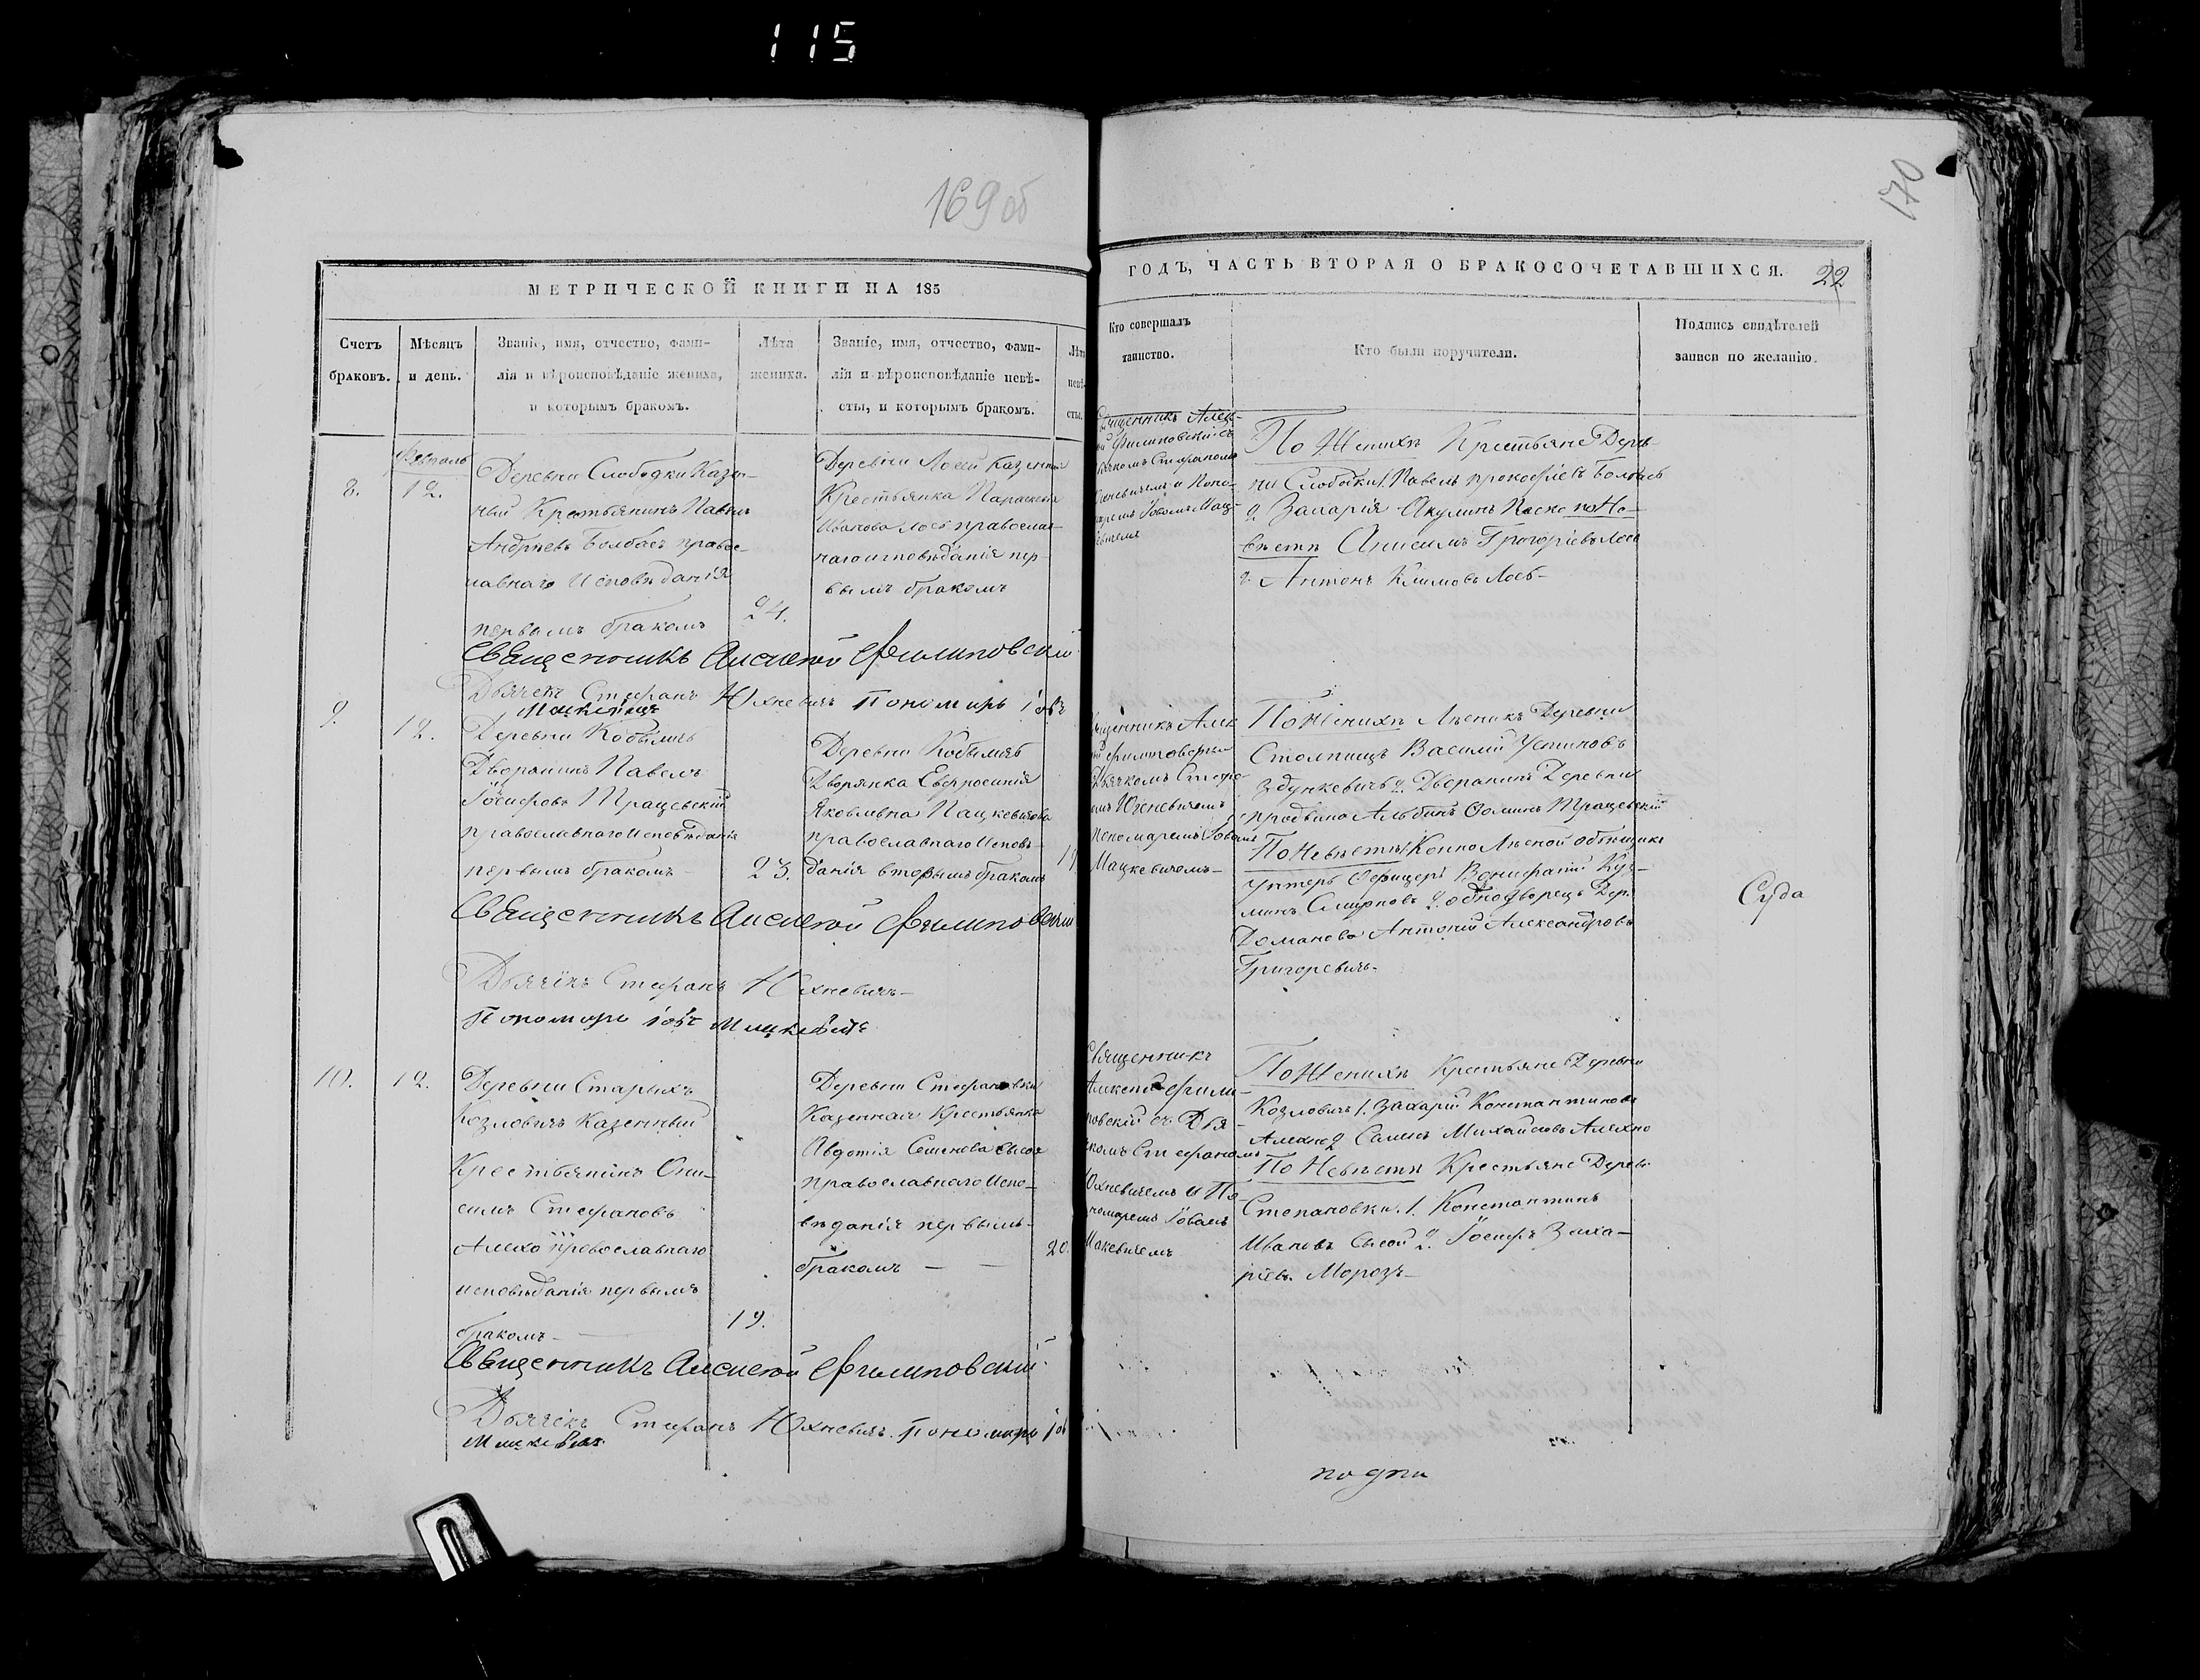 115
169 об
170
МЕТРИЧЕСКОЙ КНИГИ НА 185
ГОДЪ, ЧАСТЬ ВТОРАЯ О БРАКОСОЧЕТАВШИХСЯ.
22
Счетъ
браковъ.
Мѣсяцъ
и день.
Званіе, имя, отчество, фами-
лія и вѣроисповѣданіе жениха,
и которымъ бракомъ.
Лѣта
жениха.
Званіе, имя, отчество, фами-
лія и вѣроисповѣданіе невѣ-
сты, и которымъ бракомъ.
Лѣта
невѣ-
сты.
Кто совершалъ
таинство.
Кто были поручители.
Подпись свидѣтелей
записи по желанію.
8.
Февраль
12.
Деревни Слободки Казен-
ный Крестьянинъ Павелъ
Андреевъ Болбасъ правос-
лавнаго Исповѣданія
первымъ бракомъ
24.
Деревни Лоси казенная
Крестьянка Параскева
Иванова Лось православ-
наго исповѣданія пер-
вымъ бракомъ
Священникъ Алек-
Филиповскій съ
Стефаномъ
Юхневичемъ и Поно-
маремъ Іовомъ Мац-
кевичемъ
По Женихѣ Крестьяне Дерев-
ни Слободки 1. Павелъ прокофіевъ Болбасъ
2 Захарія Акулинъ по Не-
вѣстѣ Анисимъ Григорьевъ Лось
2. Антонъ Климовъ Лось-
Священникъ Алексѣй Филиповскій
Дьячекъ Стефанъ Юхневичъ Пономарь Іовъ
Мацкевичъ
9.
12.
Деревни Кобыличъ
Дворянинъ Павелъ
Іосифовъ Працевскій
православнаго Исповѣданія
первымъ бракомъ-
23.
Деревни Кобыличъ
Дворянка Евфросинія
Яковлевна Пацкевичова
православнаго Исповѣ-
данія вторымъ бракомъ
Священникъ Алек
Филиповскій
Дьячкомъ Стефа-
омъ Юхневичемъ
Пономаремъ Іовомъ
Мацкевичемъ-
По Женихѣ Лѣсникъ Деревни
Столпищъ Василій Устиновъ
Здункевичъ 2. Дворанинъ Деревни
Альбинъ Фоминъ Працевскій
По Невѣстѣ Конно Лѣсной объѣщикъ
Унтеръ Офицеръ Вонифатій Куз-
минъ Смирновъ 2. однодворецъ Дер.
Доманова Антоній Александровъ
Григоревичъ-
Суда
Священникъ Алексѣй Филиповскій
Дьячекъ Стефанъ Юхневичъ-
Пономарь Іовъ Мацкевичъ
10.
12.
Деревни Старыхъ
Козловичъ Казенный
Крестьянинъ Они-
симъ Стефановъ
Алехно православнаго
исповѣданія первымъ
бракомъ-
19.
Деревни Стефановки
Казенная Крестьянка
Авдотія Семенова Сысой
православнаго Испо-
вѣданія первымъ-
бракомъ — —
20.
Священникъ
Алексѣй Фили-
повскій съ Дья-
чкомъ Стефаномъ
Юхневичемъ и По-
номаремъ Іовомъ
Мацкевичемъ
По Женихѣ Крестьяне Деревни
Козловичъ 1. Захарій Константиновъ
Алехно 2 Самсъ Михайловъ Алехно
По Невѣстѣ Крестьяне Дерев-
Степановки 1. Константинъ
Ивановъ Сысой 2. Іосифъ Заха-
ріевъ Морозъ-
Священникъ Алексѣй Филиповскій.
Дьячекъ Стефанъ Юхневичъ. Пономарь Іовъ
Мацкевичъ.
подпи